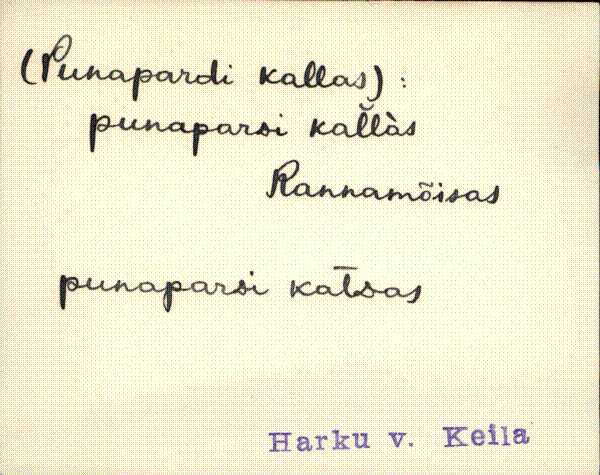 (Punapardi kallas) :
punaparsi kal̆làs
Rannamõisas
punaparsi kat̄sas
Harku v. Keila